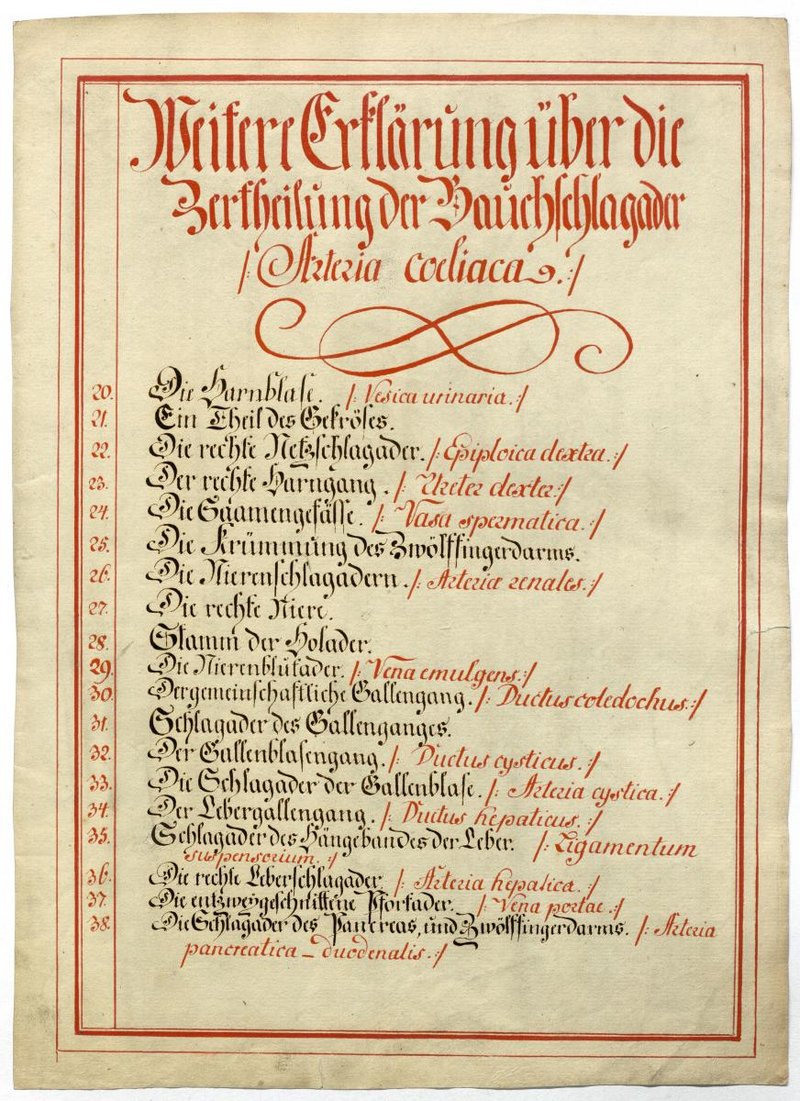 Weitere Erklärung über die
Zertheilung der Bauchschlagader
/: Arteria coeliaca. :/
20. Die Harnblase. /: Vesica urinaria. :/
21. Ein Theil des Gekröses.
22. Die rechte Netzschlagader. /: Epiploica dextra. :/
23. Der rechte Harngang. /: Ureter dexter :/
24. Die Saamengefässe. /: Vasa spermatica. :/
25. Die Krümmung des Zwölffingerdarms.
26. Die Nierenschlagadern. /: Arteriæ renales. :/
27. Die rechte Niere.
28. Stamm der Holader.
29. Die Nierenblutader. /: Vena emulgens :/
30. Der gemeinschaftliche Gallengang. /: Ductus coledochus. :/
31. Schlagader des Gallenganges.
32. Der Gallenblasengang. /: Ductus cysticus. :/
33. Die Schlagader der Gallenblase. /: Arteria cystica. :/
34. Der Lebergallengang. /: Ductus hepaticus. :/
35. Schlagader des Hängebandes der Leber. /: Ligamentum
suspensorium. :/
36. Die rechte Leberschlagader /: Arteria hepatica. :/
37. Die entzweygeschnittene Pfortader. /: Vena portae. :/
38. Die Schlagader des Pancreas, und Zwölffingerdarms. /: Arteria
pancreatica – duodenalis. :/